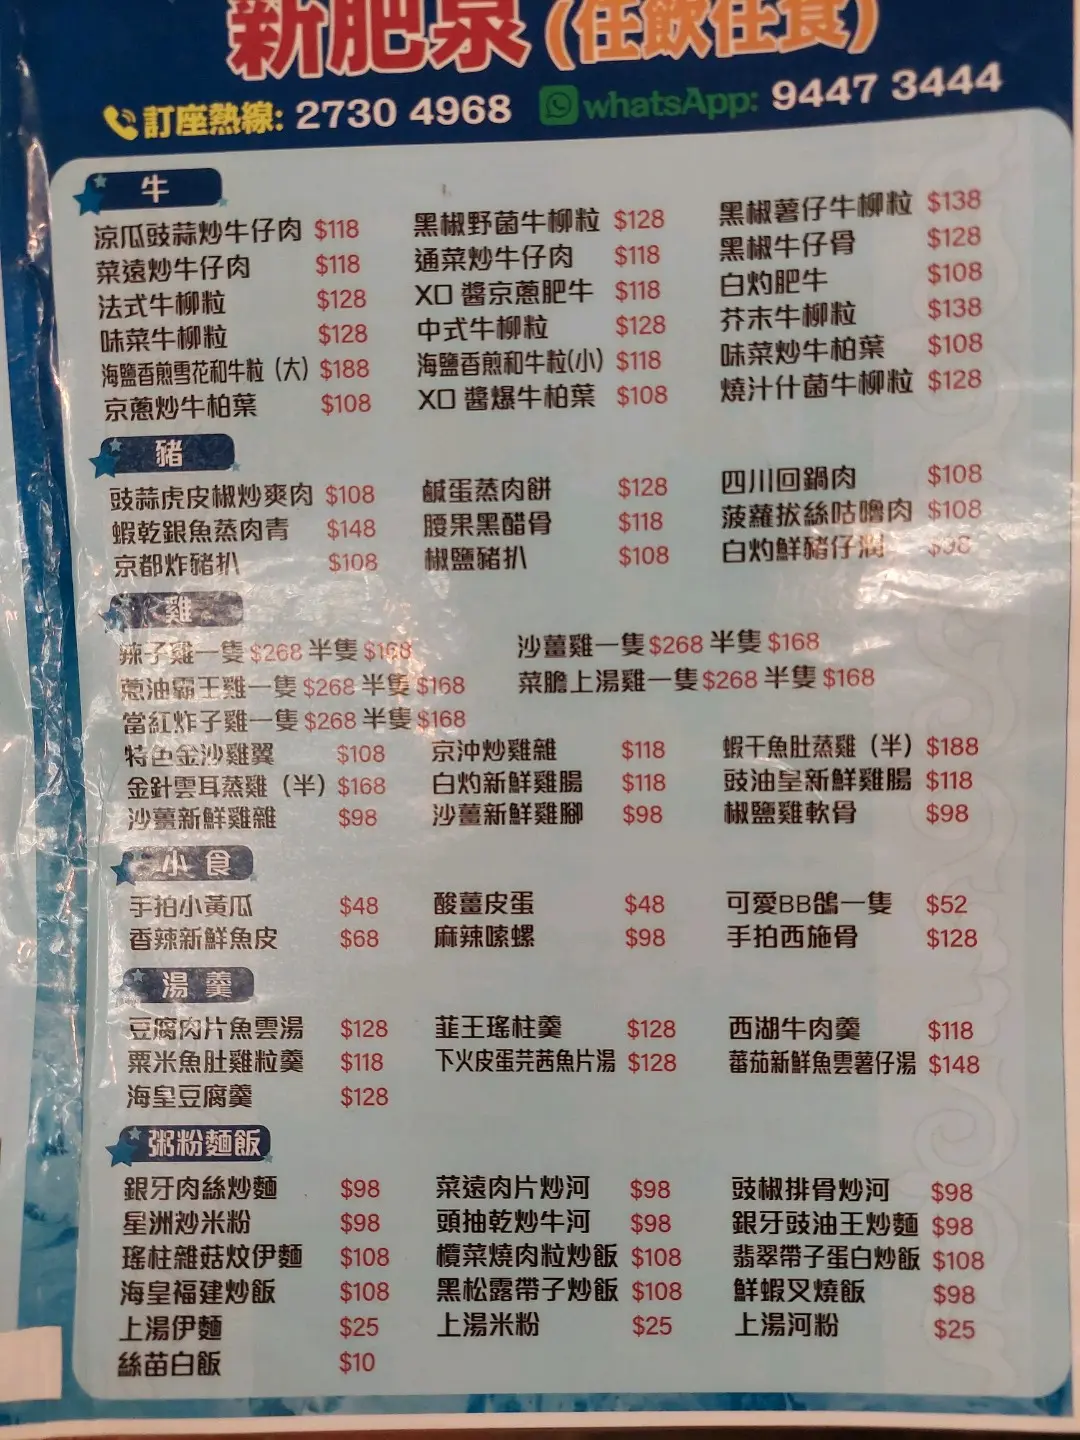 新肥泉(任飲任食)
訂座熱線: 2730 4968 whatsApp: 9447 3444
牛
涼瓜豉蒜炒牛仔肉 $118 黑椒野菌牛柳粒 $128 黑椒薯仔牛柳粒 $138
菜遠炒牛仔肉 $118 通菜炒牛仔肉 $118 黑椒牛仔骨 $128
法式牛柳粒 $128 XO 醬京蔥肥牛 $118 白灼肥牛 $108
味菜牛柳粒 $128 中式牛柳粒 $128 芥末牛柳粒 $138
海鹽香煎雪花和牛粒 (大) $188 海鹽香煎和牛粒(小) $118 味菜炒牛柏葉 $108
京蔥炒牛柏葉 $108 XO 醬爆牛柏葉 $108 燒汁什菌牛柳粒 $128
豬
豉蒜虎皮椒炒爽肉 $108 鹹蛋蒸肉餅 $128 四川回鍋肉 $108
蝦乾銀魚蒸肉青 $148 腰果黑醋骨 $118 菠蘿拔絲咕嚕肉 $108
京都炸豬扒 $108 椒鹽豬扒 $108 白灼鮮豬仔潤 $98
雞
辣子雞一隻 $268 半隻 $168 沙薑雞一隻 $268 半隻 $168
蔥油霸王雞一隻 $268 半隻 $168 菜膽上湯雞一隻 $268 半隻 $168
當紅炸子雞一隻 $268 半隻 $168
特色金沙雞翼 $108 京沖炒雞雜 $118 蝦干魚肚蒸雞 (半) $188
金針雲耳蒸雞 (半) $168 白灼新鮮雞腸 $118 豉油皇新鮮雞腸 $118
沙薑新鮮雞雜 $98 沙薑新鮮雞腳 $98 椒鹽雞軟骨 $98
小食
手拍小黃瓜 $48 酸薑皮蛋 $48 可愛BB鴿一隻 $52
香辣新鮮魚皮 $68 麻辣嗦螺 $98 手拍西施骨 $128
湯羹
豆腐肉片魚雲湯 $128 韮王瑤柱羹 $128 西湖牛肉羹 $118
粟米魚肚雞粒羹 $118 下火皮蛋芫茜魚片湯 $128 蕃茄新鮮魚雲薯仔湯 $148
海皇豆腐羹 $128
粥粉麵飯
銀牙肉絲炒麵 $98 菜遠肉片炒河 $98 豉椒排骨炒河 $98
星洲炒米粉 $98 頭抽乾炒牛河 $98 銀牙豉油王炒麵 $98
瑤柱雜菇炆伊麵 $108 欖菜燒肉粒炒飯 $108 翡翠帶子蛋白炒飯 $108
海皇福建炒飯 $108 黑松露帶子炒飯 $108 鮮蝦叉燒飯 $98
上湯伊麵 $25 上湯米粉 $25 上湯河粉 $25
絲苗白飯 $10